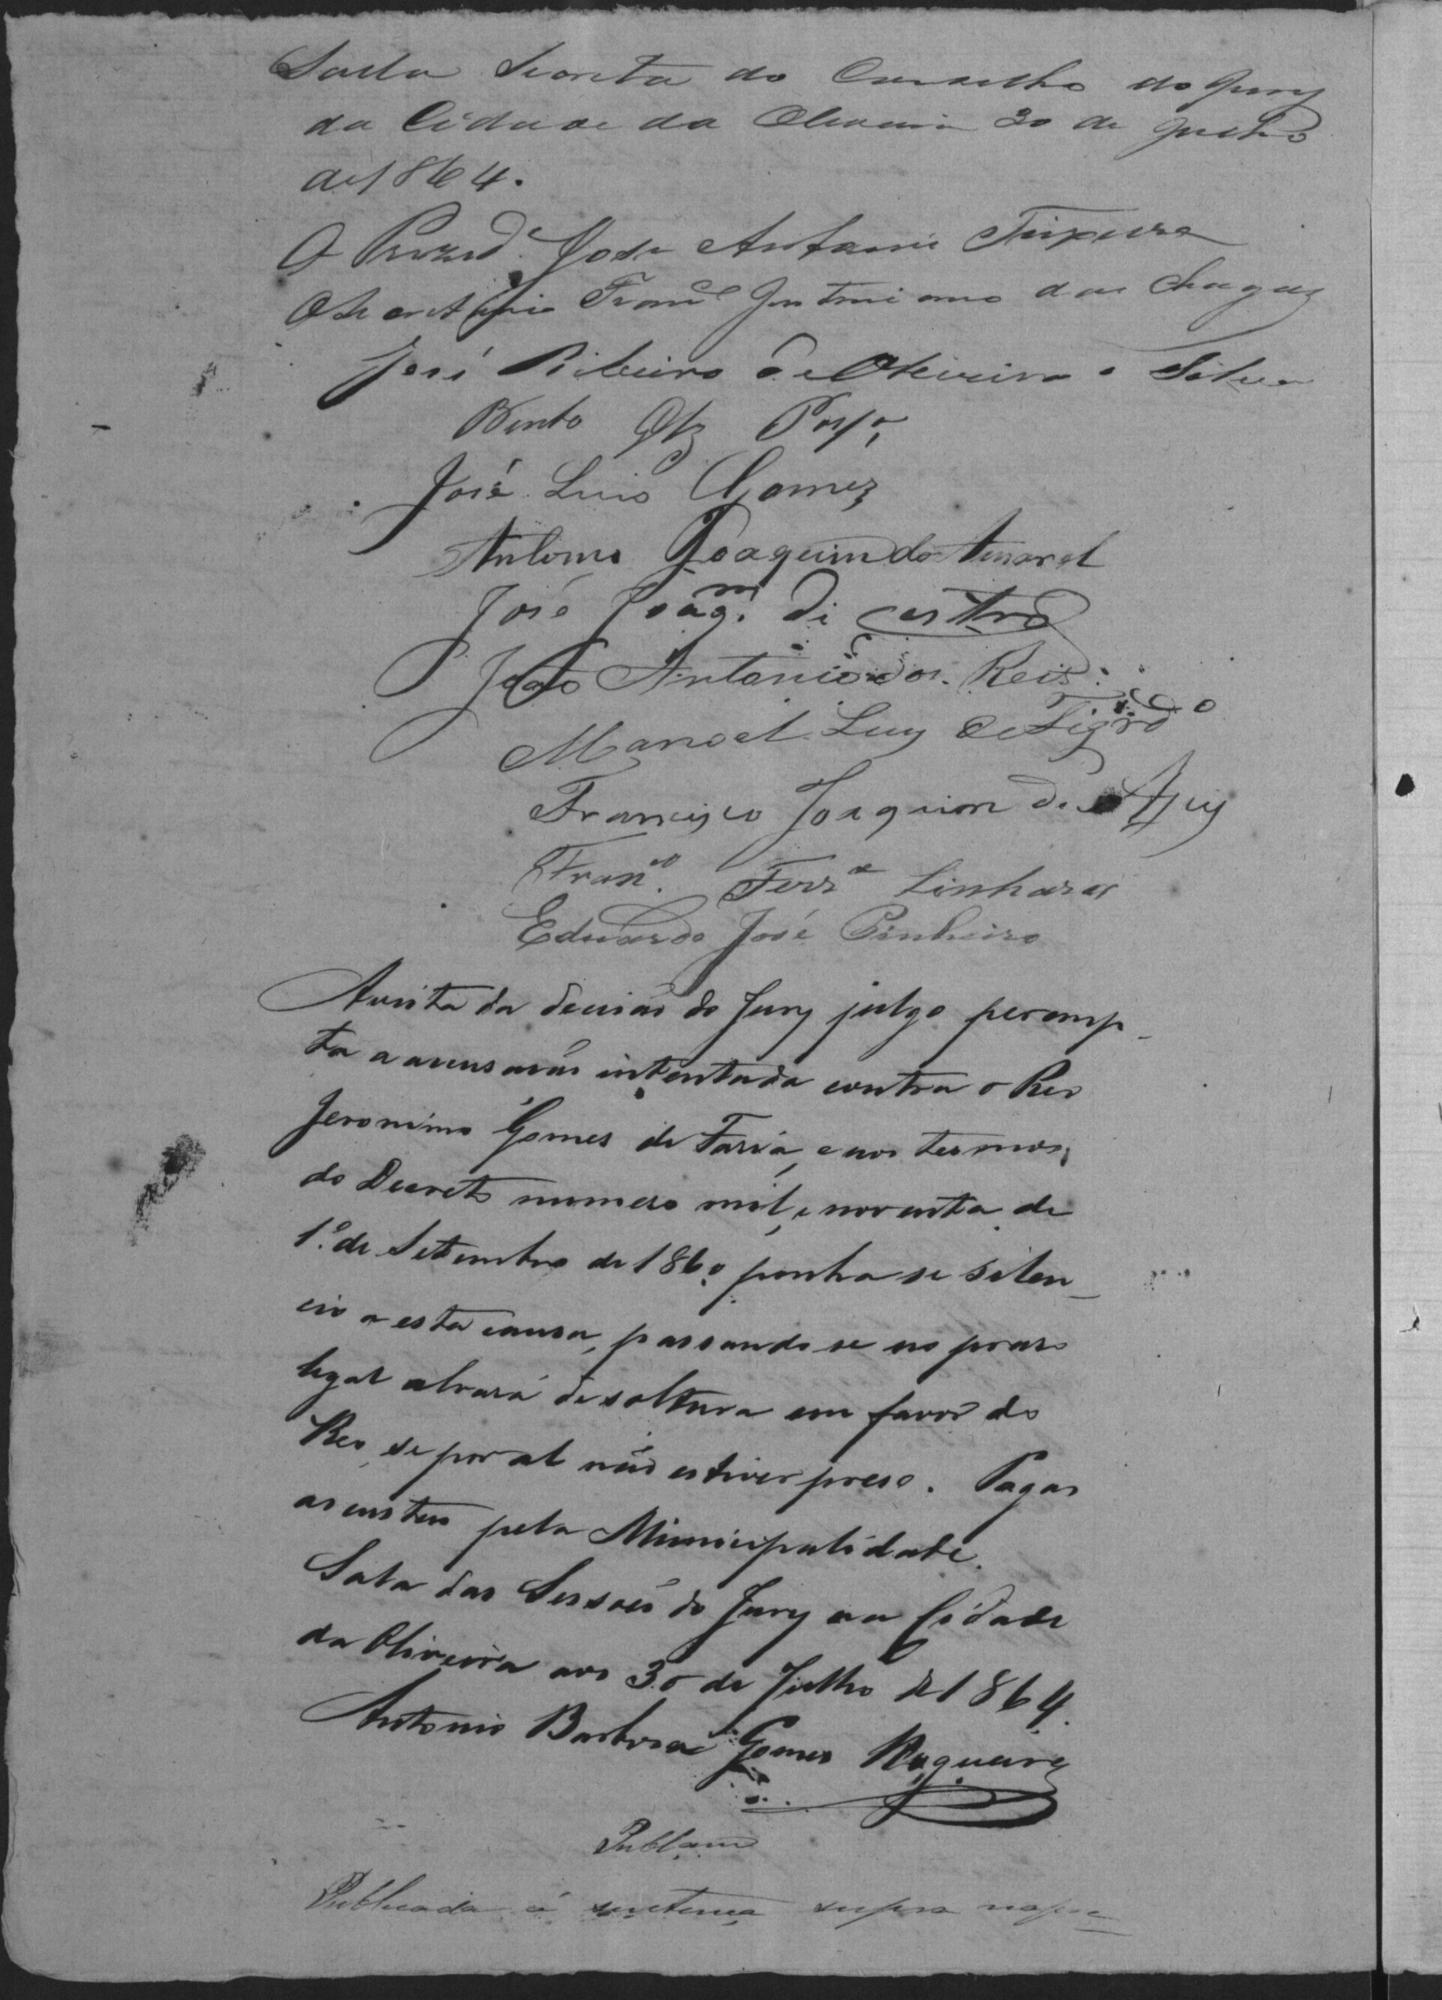 Salla Secreta do Conselho do Jury
da Cidade da Oliveira 30 de Julho
de 1864.
O Prezid.e José Antonio Teixeira
O Secretario Fran.co Justiniano das Chagas
José Ribeiro de Oliveira e Silva
Bento
José Luis Gomez
Antonio Joaquim do Amaral
José Joaq.m di Castro
João Antonio dos Reis
Manoel Luis de
Francisco Joaquim de
Fran.co Ferr.a Linhares
Eduardo José Pinheiro
A vista da decisão do Jury julgo peremp-
ta a accusação intentada contra o Reo
Jeronimo Gomes de Faria, e nos termos
do Decreto numero mil, e noventa de
1.º de Setembro de 1860 ponha se silen-
cio a esta causa, passando se no praso
legal alvará de soltura em favor do
Reo, se por al não estiver preso. Pagas
as custas pela Municipalidade.
Sala das Sessoes do Jury na Cidade
da Oliveira aos 30 de Julho de 1864.
Antonio Barbosa Gomes Nogueira
Publ.am
Publicada a sentença supra na pre-